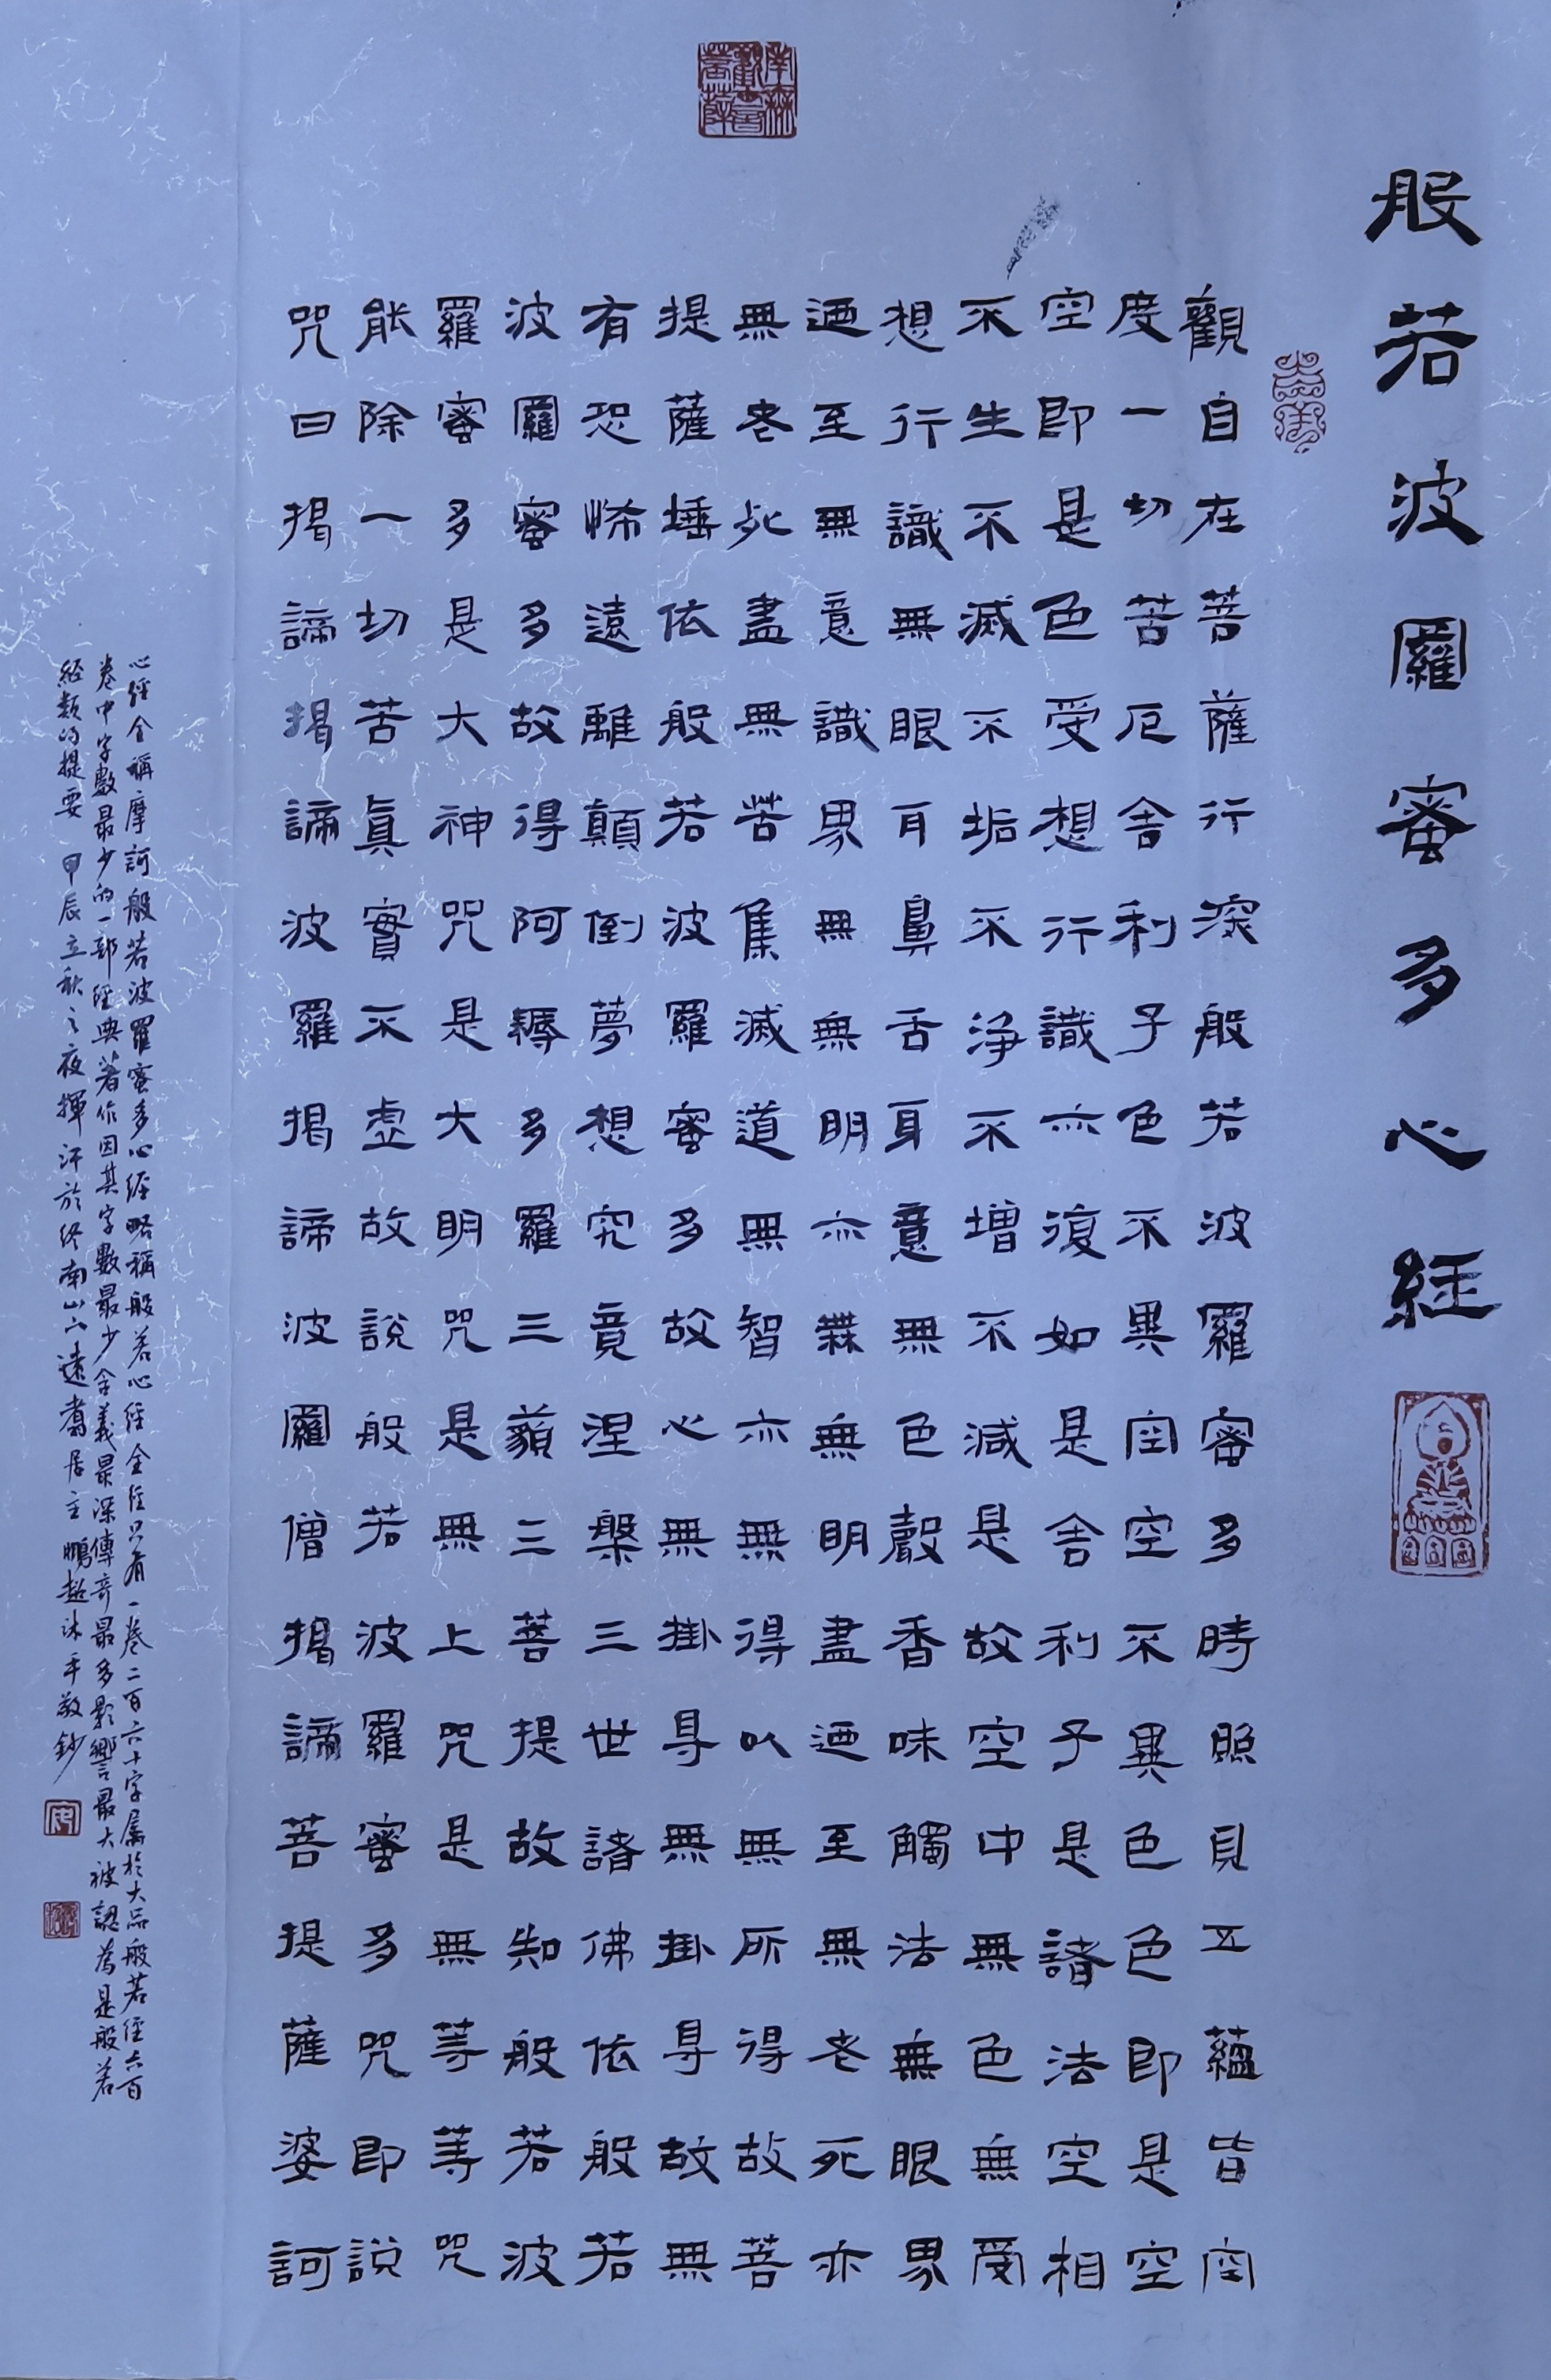 南無觀世音菩薩
般若波羅蜜多心經
觀自在菩薩行深般若波羅蜜多時照見五蘊皆空
度一切苦厄舍利子色不異空空不異色色即是空
空即是色受想行識亦復如是舍利子是諸法空相
不生不滅不垢不淨不增不減是故空中無色無受
想行識無眼耳鼻舌身意無色聲香味觸法無眼界
迺至無意識界無無明亦無無明盡迺至無老死亦
無老死盡無苦集滅道無智亦無得以無所得故菩
提薩埵依般若波羅蜜多故心無掛㝵無掛㝵故無
有恐怖遠離顛倒夢想究竟涅槃三世諸佛依般若
波羅蜜多故得阿耨多羅三藐三菩提故知般若波
羅蜜多是大神咒是大明咒是無上咒是無等等咒
能除一切苦真實不虛故說般若波羅蜜多咒即說
咒曰揭諦揭諦波羅揭諦波羅僧揭諦菩提薩婆訶
心經全稱摩訶般若波羅蜜多心經略稱般若心經全經只有一卷二百六十字屬於大品般若經六百
卷中字數最少的一部經典著作因其字數最少含義最深傳奇最多影響最大被認為是般若
經類的提要 甲辰立秋之夜揮汗於終南山下遠鶱居主鵬超沐手敬鈔